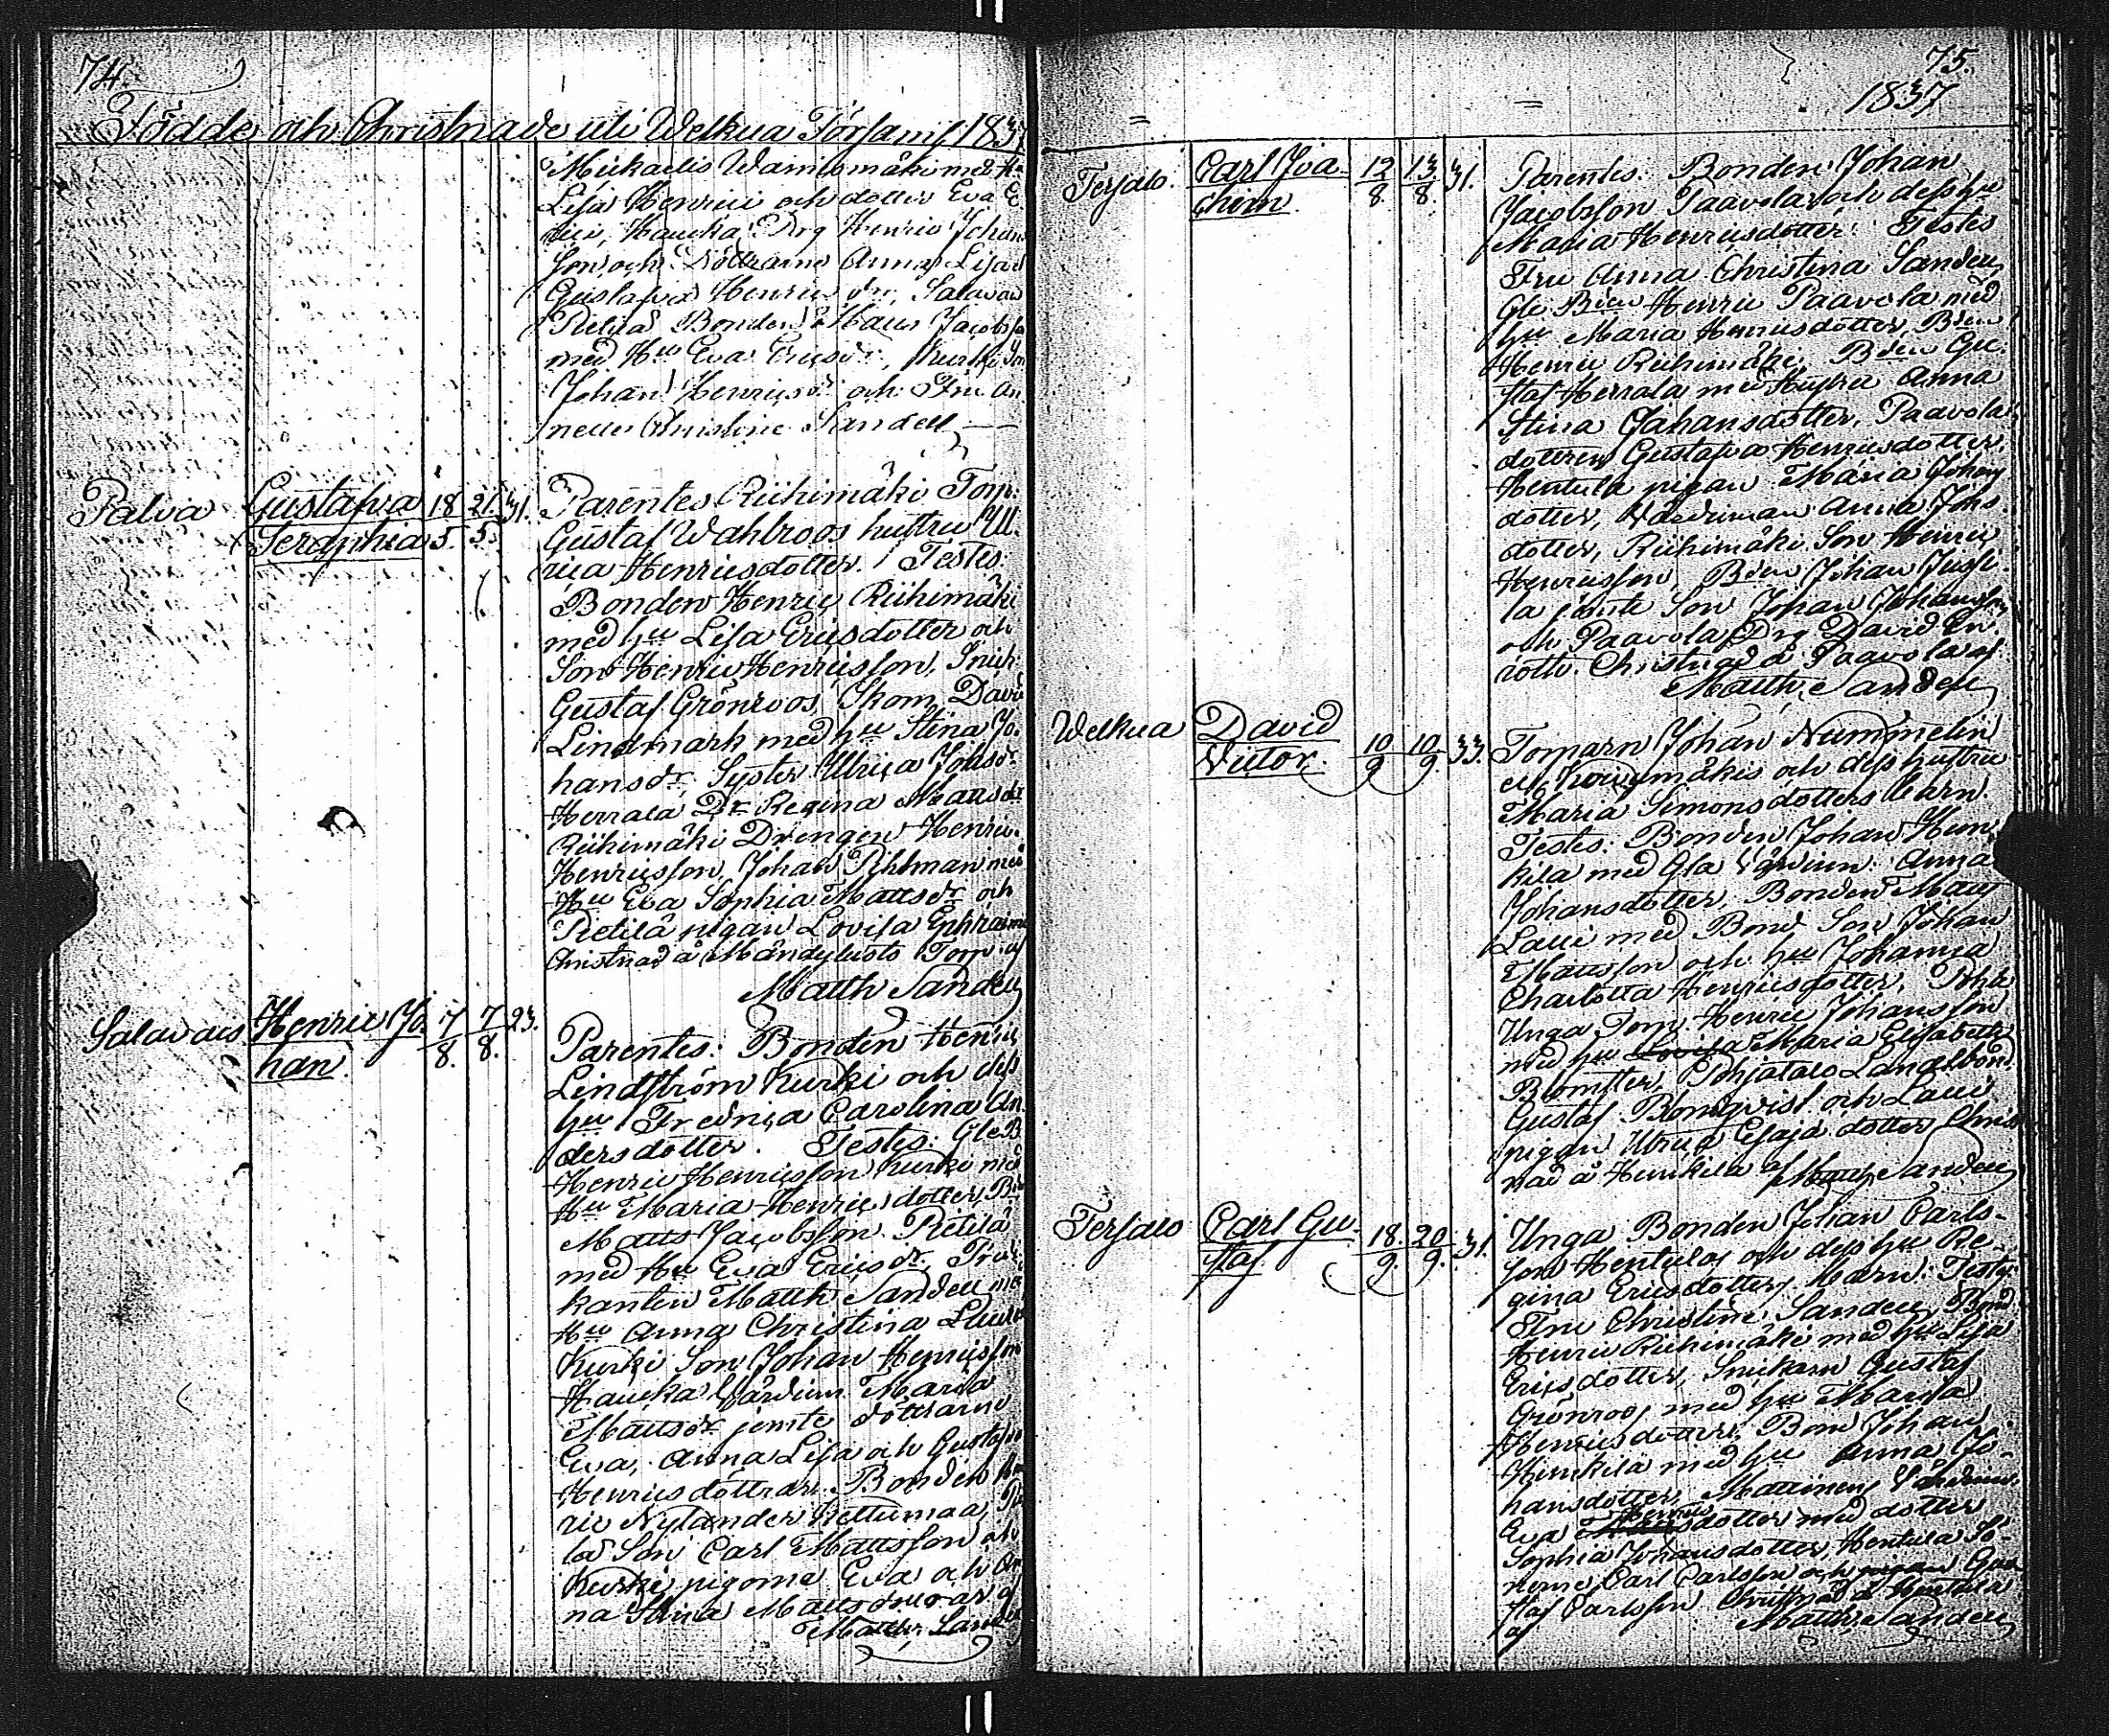 74.
Födde och Christnade uti Welkua Församl 1837
Mickaelis Wainiomäki med
Lisa Henrici och dotter Eva
Haucka Drg Henric Johans
son, och Döttrarne Anna Lisa
Gustafva Henrics dr, Salavais
Pietilä Bonden Matts Jacobsso
med Hu Eva Ericsdr, Kurki Son
Johan Henricss. och Fru An
nette Christine Sandell
Palva Gustafva 18 21. 31. Parentes Riihimäki Torp.
Seraphia 5. 5. Gustaf Wahlroos hustru Ul.
rica Henricsdotter. Testes:
Bonden Henric Riihimäki
med hu Lisa Ericsdotter och
Son Henric Henricsson, Snick.
Gustaf Grönroos, Skom. Davi
Lindmark med hu Stina Jo.
hansdr, Syster Ulrica Johsdr
Herrala Dr Regina Mattsdr
Riihimäki Drengen Henric
Henricsson, Johan Pihlman med
Hu Eva Sophia Mattsdr och
Pietilä pigan Lovisa Ephraims
Christnad å Mändyluoto Torp af
Matth Sandell
Salavais Henric Jo. 7 7 23.
han. 8. 8. Parentes: Bonden Henric
Lindström Kurki och dess
hu Fredrica Carolina An.
dersdotter. Testes: Gle B
Henric Henricsson Kurki med
Hu Maria Henricsdotter, Bn
Matts Jacobsson Pietilä
med Hu Eva Ericsdr, Predi
kanten Matth Sandell med
Hu Anna Christina
Kurki Son Johan Henricsson
Haucka Wärdinn Maria
Mattsdr jemte döttrarne
Eva, Anna Lisa och Gustafva
Henricsdöttrar. Bonden Hen
ric Nylander Kettumaa,
la Son Carl Mattsson och
Kurki pigorne Eva och An
na Stina Mattsdottrar af
Matth. Sandell
75.
1837
Tersalo. Carl Joa- 12 13 31. Parentes: Bonden Johan
chim. 8. 8. Jacobsson Paavola och dess hu
Maria Henricsdotter. Testes
Fru Anna Christina Sandell,
Gle Bden Henric Paavola med
hu Maria Henricsdotter, Bden
Henric Riihimäki, Bden Gu.
staf Herrala med Hustru Anna
Stina Johansdotter, Paavola
dottren Gustafva Henricsdotter.
Hentula pigan Maria Johans
dotter, Wärdinnan Anna Johs.
dotter, Riihimäki Son Henric
Henricsson, Bden Johan Jussi.
la jemte Son Johan Johansson
och Paavola Drg David En
roth. Christnad å Paavola af
Matth. Sandell
Welkua David 10 10 33. Tomarn Johan Nummelin
Victor. 9 9. och dess hustru
Maria Simonsdotters Barn.
Testes: Bonden Johan Hun
kila med Gla Wärdinn: Anna
Johansdotter, Bonden Matts
Lauci med Bond Son Johan
Mattsson och hu Johanna
Charlotta Henricsdotter,
Unga Torp. Henric Johansson
med hu Maria Elisabeth
Blomster, Landtbond
Gustaf Blomqvist och Lauci
pigan Ulrica Esajae dotter Christ
nad å Hunkila af Matth Sandell
Tersalo Carl Gu- 18. 20 31. Unga Bonden Johan Carls-
staf. 9. 9. son Hentula och dess hu Re-
gina Ericsdotters Barn. Testes
Fru Christine Sandell, Bond
Henric Riihimäki med hu Lisa
Ericsdotter, Snickarn Gustaf
Grönroos med hu Maria
Henricsdotter, Bond Johan
Hunkila med hu Anna Jo-
hansdotter, Mattinen Wärdinn.
Eva Henricsdotter med dotter
Sophia Johansdotter, Hentula Sö-
nerne Carl Carlsson och Gu
staf Carlsson. Christnad å Hentula
af Matth. Sandell